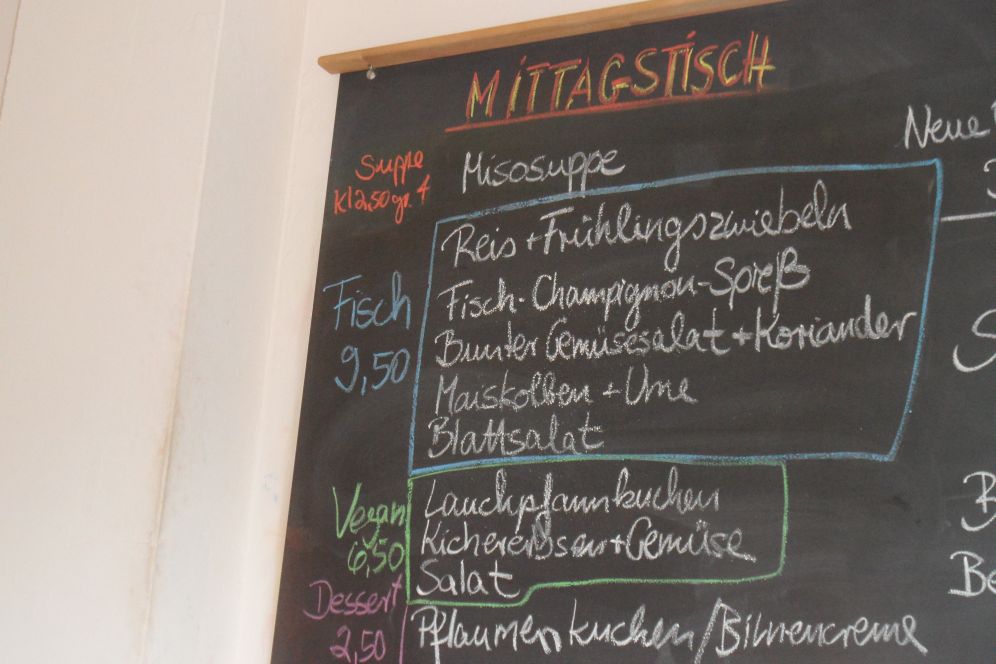 MITTAGSTISCH
Suppe
kl 2,50 gr. 4
Misosuppe
Fisch
9,50
Reis + Frühlingszwiebeln
Fisch-Champignon-Spieß
Bunter Gemüsesalat + Koriander
Maiskolben + Ume
Blattsalat
Vegan
6,50
Lauchpfannkuchen
Kichererbsen + Gemüse
Salat
Dessert
2,50
Pflaumenkuchen / Birnencreme
Neue